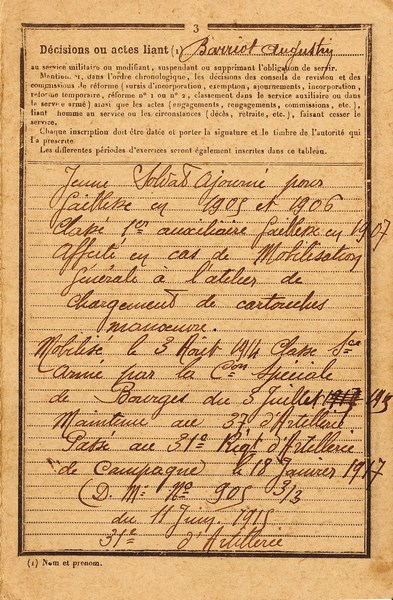 3
Décisions ou actes liant (1) Barriot Augustin
au service militaire ou modifiant, suspendant ou supprimant l'obligation de servir.
Mentionner, dans l'ordre chronologique, les décisions des conseils de revision et des
commissions de réforme (sursis d'incorporation, exemption, ajournements, incorporation,
réforme temporaire, réforme nº 1 ou nº 2, classement dans le service auxiliaire ou dans
le service armé) ainsi que les actes (engagements, rengagements, commissions, etc.),
liant l'homme au service ou les circonstances (décès, retraite, etc.), faisant cesser le
service.
Chaque inscription doit être datée et porter la signature et le timbre de l'autorité qui
l'a prescrite.
Les différentes périodes d'exercices seront également inscrites dans ce tableau.
Jeune Soldat Ajourné pour
faiblesse en 1905 et 1906
Classé Ser auxiliaire faiblesse en 1907
Affecté en cas de Mobilisation
Générale à l'atelier de
chargement de cartouches
manœuvre.
Mobilisé le 3 Août 1914 Classé Sce
Armé par la Con Spéciale
de Bourges du 3 Juillet 1915
Maintenu au 37 d'Artillerie
Passé au 31e Régt d'Artillerie
de Campagne le 18 Janvier 1917
(D. M. No 905 3/3
du 11 Juin 1915
31e d'Artillerie
(1) Nom et prénom.